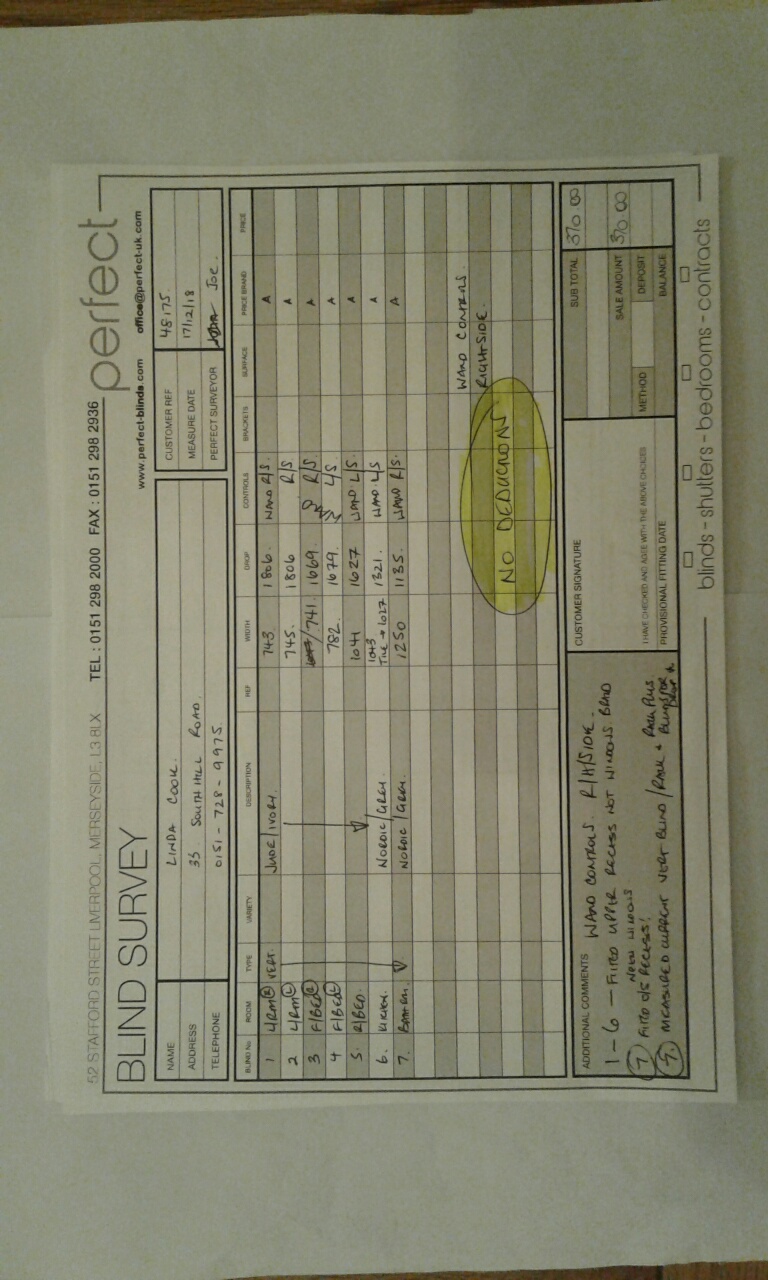 52 STAFFORD STREET LIVERPOOL, MERSEYSIDE, L3 8LX TEL : 0151 298 2000 FAX : 0151 298 2936
BLIND SURVEY
perfect
www.perfect-blinds.com office@perfect-uk.com
NAME LINDA COOK.
ADDRESS 35 SOUTH HILL ROAD.
TELEPHONE 0151-728-9975
CUSTOMER REF 48175.
MEASURE DATE 17/12/18
PERFECT SURVEYOR JOE.
BLIND No. ROOM TYPE VARIETY DESCRIPTION REF WIDTH DROP CONTROLS BRACKETS SURFACE PRICE BAND PRICE
1 L/RM (R) VERT. JUDE/IVORY. 743. 1806. WAND R/S. A
2 L/RM (L) 745. 1806 R/S A
3 F/BED (R) /741. 1669. R/S. A
4 F/BED (L) 782. 1679. L/S A
5. R/BED. 1041 1627 WAND L/S. A
6. KITCH. NORDIC/GREY. 1043 1321. WAND L/S A
TILE → 1027
7. BATHRM NORDIC/GREY. 1250 1135. WAND R/S. A
WAND CONTROLS.
RIGHT SIDE.
NO DEDUCTIONS
ADDITIONAL COMMENTS WAND CONTROLS. R/H/SIDE.
1-6 - FITTED UPPER RECESS NOT WINDOWS
NOT WINDOWS
7 FITTED O/S RECESS!
MEASURED CURRENT VERT BLIND/RAIL & RAIL PLUS
CUSTOMER SIGNATURE
I HAVE CHECKED AND AGREE WITH THE ABOVE CHOICES
PROVISIONAL FITTING DATE
SUB TOTAL 370 00
SALE AMOUNT 370.00
METHOD DEPOSIT
BALANCE
blinds - shutters - bedrooms - contracts